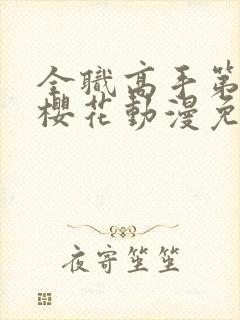 全職高手第
櫻花動漫免
夜寄笙笙